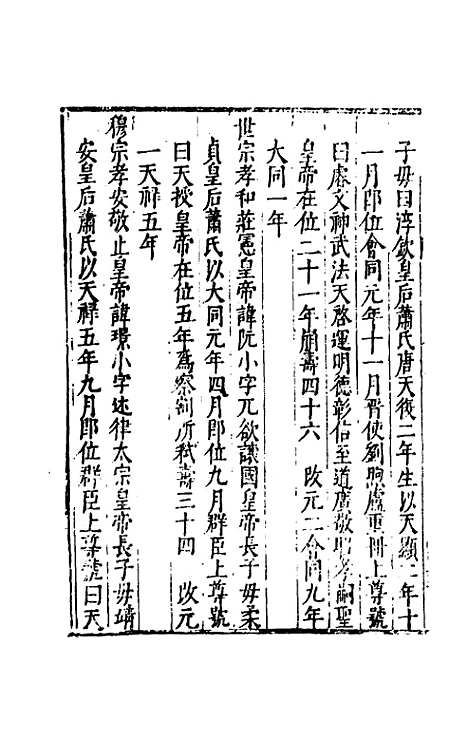 子母曰淳欽皇后蕭氏唐天復二年生以天顯二年十
一月即位會同元年十一月晋使劉煦盧重冊上尊號
曰睿文神武法天啓運明德彰信至道廣敬昭孝嗣聖
皇帝在位二十一年崩壽四十六　改元二會同九年
大同一年
世宗孝和莊憲皇帝諱阮小字兀欲讓國皇帝長子母柔
貞皇后蕭氏以大同元年四月即位九月群臣上尊號
曰天授皇帝在位五年爲察割所弒壽三十四　改元
一天祥五年
穆宗孝安敬止皇帝諱璟小字述律太宗皇帝長子母靖
安皇后蕭氏以天祿五年九月即位群臣上尊號曰天